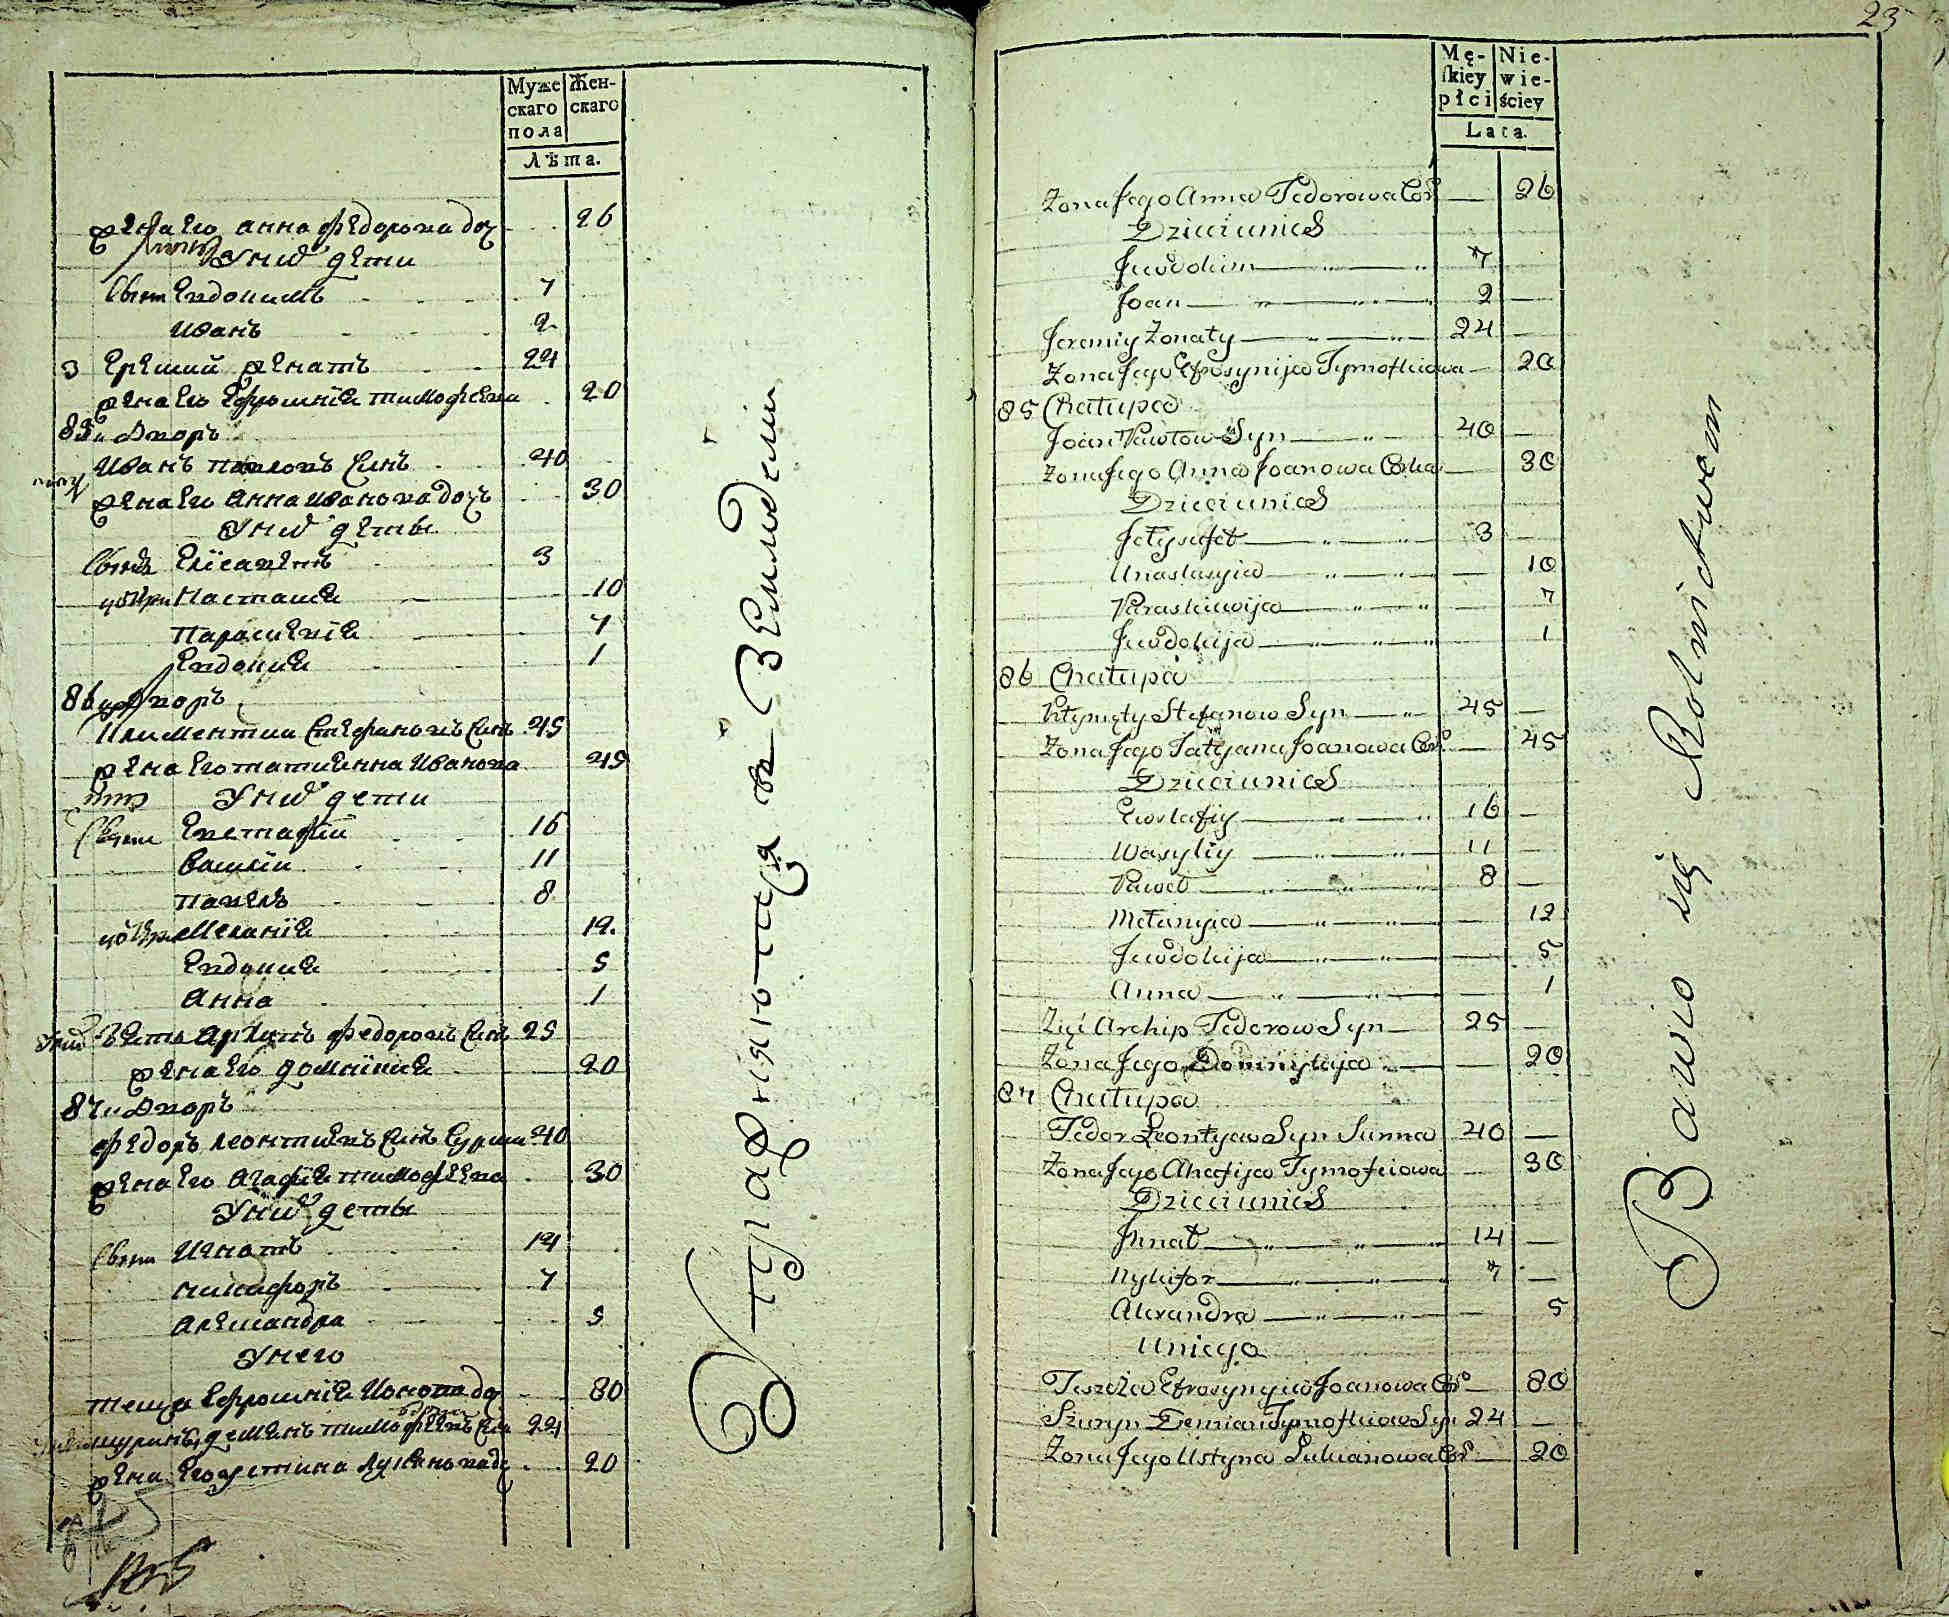 Муже скаго пола
Жен- скаго
Лѣта.
жена его анна федорова доч 26
У них дети
Сыни Евдокимъ 7
Иванъ 2
3 Еремий женатъ 24
жена его Ефросинїя тимофеева 20
85 Дворъ
Иванъ павловъ Синъ 40
жена его анна иванова дочъ 30
У них дети
Елїсаветъ 3
Настасия 10
парасковїя 7
Евдокия 1
86 Дворъ
Климентии Стефановъ Синъ 45
жена его татиянна Иванова 45
У них дети
Сыни Евстафїй 16
Василїи 11
павелъ 8
Меланїя 12.
Евдокия 5
анна 1
Зять архипъ федоровъ Синъ 25
жена его домникия 20
87 Дворъ
федоръ леонтиевъ Синъ Сурма 40
жена его агафїя тимофеева 30
У них дети
Сыни Игнатъ 14
никифоръ 7
александра 5
У него
теща Ефросинїя Иванова до 80
шуринъ деменъ тимофеевъ Син 24
жена его устина лукянова до 20
Упражняются в Земледелии
23
Mę- skiey płci
Nie- wie- ściey
Lata.
Zona Jego Anna Fedorowa Cor — 26
Dzieci unich
Jewdokim — " — " 7
Joan — " — " — " 2 —
Jeremiy Zonaty — " — " 24 —
Zona Jego Efrosynija Tymofiiowa — 20
85 Chałupa
Joan Pawłow Syn — " — 40 —
Zona Jego Anna Joanowa Corka — 30
Dzieci unich
Jełysafet — " — " 3 —
Anastasyia — " — " — 10
Paraskiewija — " — " 7
Jewdokija — " — " 1
86 Chałupa
Kłymęty Stefanow Syn — " 45 —
Zona Jego Tatyana Joanowa Cor — 45
Dzieci unich
Ewstafiy — " — " 16 —
Wasyliy — " — " 11 —
Paweł — " — " 8 —
Mełanyia — " — " — 12
Jewdokija — " — " — 5
Anna — " — " — 1
Zięć Archip Fedorow Syn — 25 —
Zona Jego Dominykija — — 20
87 Chałupa
Fedor Leontyew Syn Surma 40 —
Zona Jego Ahafija Tymofiiowa — 30
Dzieci unich
Ihnat — " — " — 14 —
Nykifor — " — " — 7 —
Alexandra — " — " — 5
Uniego
Teszcza Efrosynyia Joanowa Cor — 80
Szuryn Demian Tymofiiow Syn 24 —
Zona Jego Ustyna Lukianowa Cor — 20
Bawio się Rolnictwem